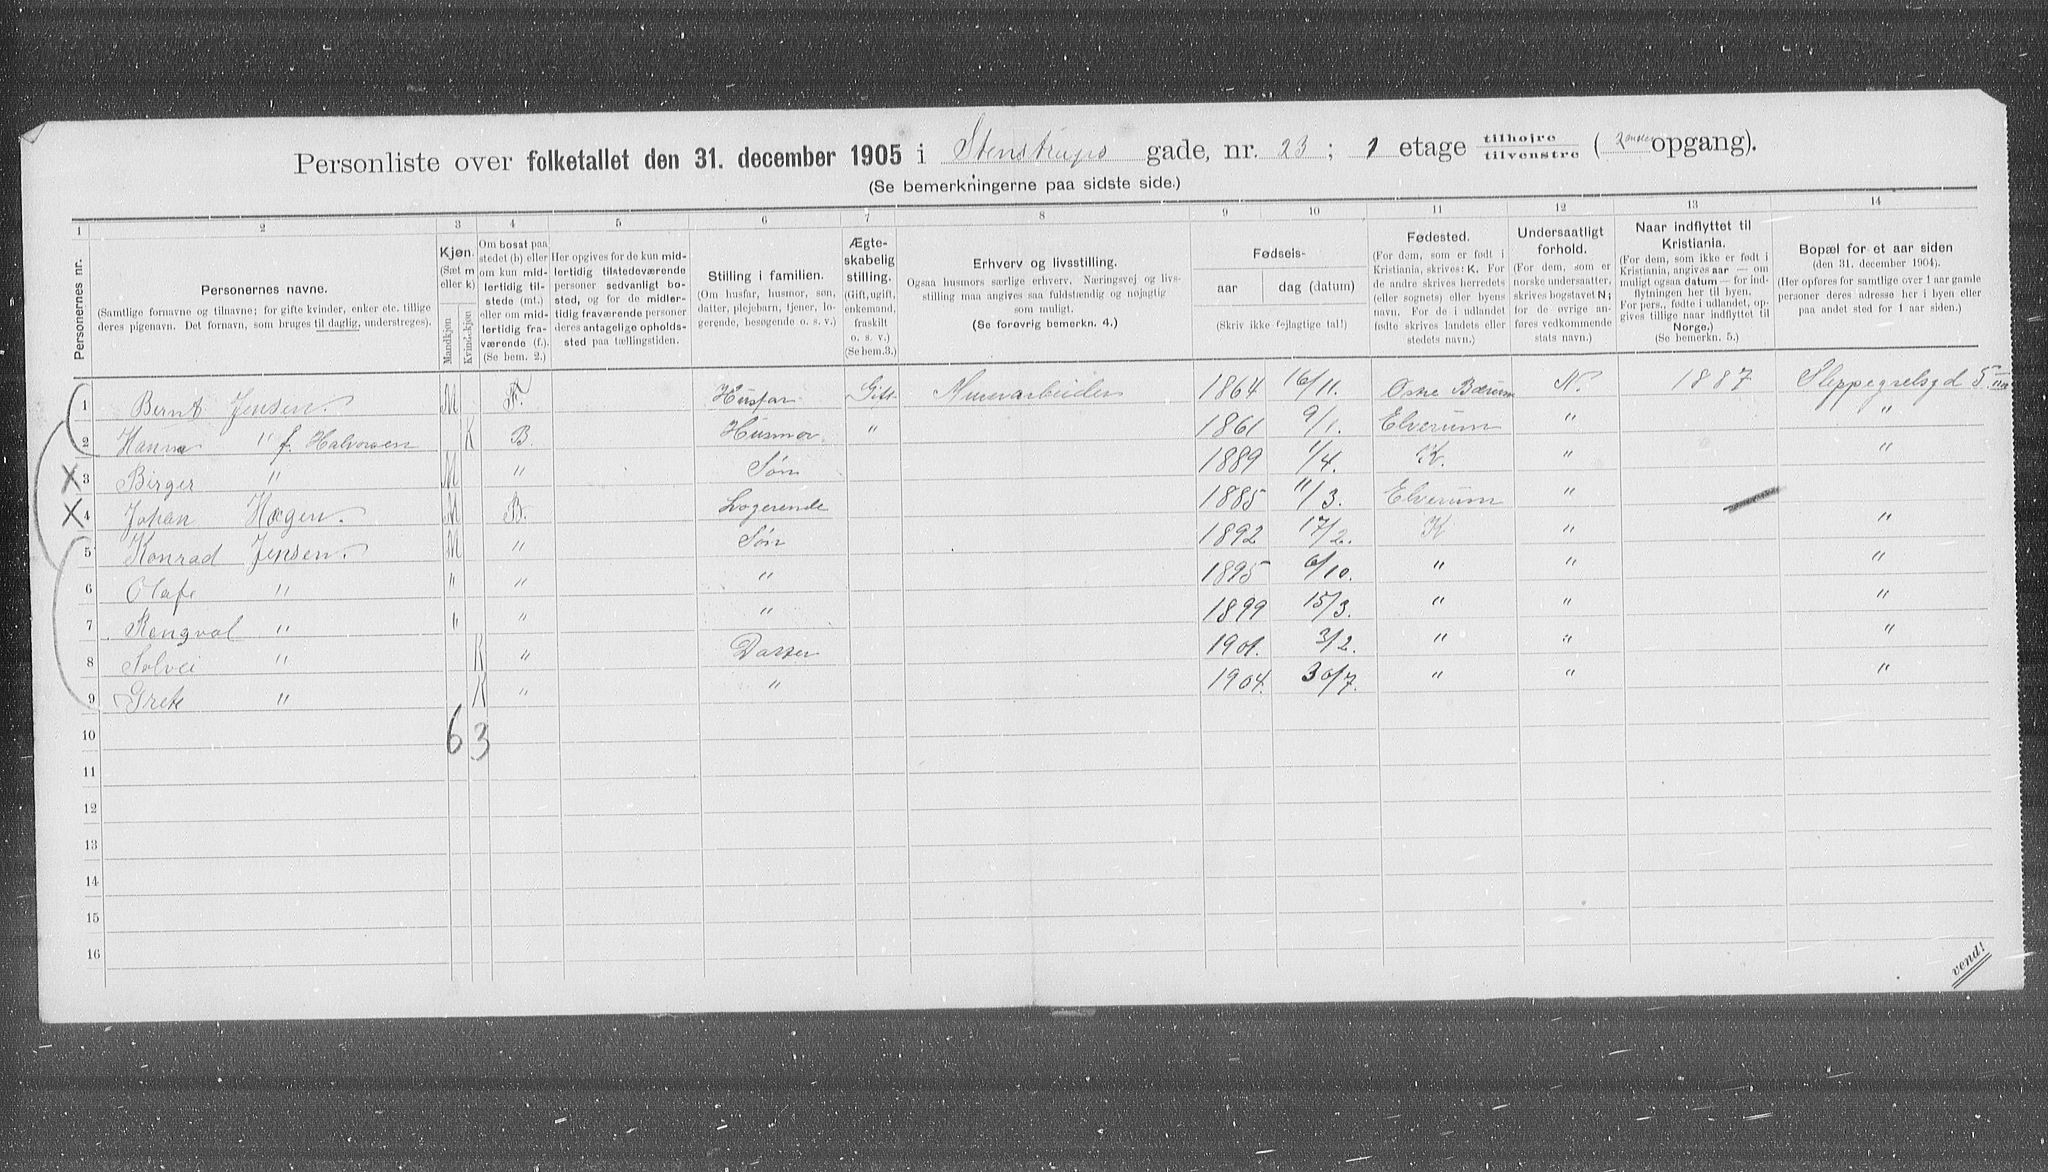 Personliste over folketallet den 31. december 1905 i Stenstrups gade, nr. 23; 1 etage tilhøjre / tilvenstre ( opgang).
(Se bemerkningerne paa sidste side.)
1 2 3 4 5 6 7 8 9 10 11 12 13 14
Personernes nr.
Personernes navne.
(Samtlige fornavne og tilnavne; for gifte kvinder, enker etc. tillige deres pigenavn. Det fornavn, som bruges til daglig, understreges).
Kjøn.
(Sæt m eller k)
Mandkjøn
Kvindekjøn
Om bosat paa stedet (b) eller om kun midlertidig tilstede (mt.) eller om midlertidig fraværende (f.) (Se bem. 2.)
Her opgives for de kun midlertidig tilstedeværende personer sedvanligt bosted, og for de midlertidig fraværende personer deres antagelige opholdssted paa tællingstiden.
Stilling i familien.
(Om husfar, husmor, søn, datter, plejebarn, tjener, logerende, besøgende o. s. v.)
Ægteskabelig stilling.
(Gift, ugift, enkemand, fraskilt o. s. v.) (Se bem. 3.)
Erhverv og livsstilling.
Ogsaa husmors særlige erhverv. Næringsvej og livsstilling maa angives saa fuldstændig og nøjagtig som muligt.
(Se forøvrig bemerkn. 4.)
Fødsels-
aar dag (datum)
(Skriv ikke fejlagtige tal!)
Fødested.
(For dem, som er født i Kristiania, skrives: K. For de andre skrives herredets (eller sognets) eller byens navn. For de i udlandet fødte skrives landets eller stedets navn.)
Undersaatligt forhold.
(For dem, som er norske undersaatter, skrives bogstavet N; for de øvrige anføres vedkommende stats navn.)
Naar indflyttet til Kristiania.
(For dem, som ikke er født i Kristiania, angives aar — om muligt ogsaa datum — for indflytningen her til byen. For pers., fødte i udlandet, opgives tillige naar indflyttet til Norge.)
(Se bemerkn. 5.)
Bopæl for et aar siden
(den 31. december 1904).
(Her opføres for samtlige over 1 aar gamle personer deres adresse her i byen eller paa andet sted for 1 aar siden.)
1 Bernt Jensen. M F. Husfar Gift Murerarbeider 1864 16/11. Østre Bærum N. 1887 Sleppegrelsgd 5
2 Hanna " f. Halvorsen K B. Husmor " 1861 9/1. Elverum " "
X 3 Birger " M " Søn 1889 1/4. K. " "
X 4 Johan Hagen. M B. Logerende 1885 11/3. Elverum "
5 Konrad Jensen. M " Søn 1892 17/2. K " "
6 Olafe " " " " 1895 6/10. " " "
7 Rangval " " " " 1899 15/3. " " "
8 Solvei " K " Datter 1901. 3/2. " " "
9 Grete " K " " 1904. 30/7. " " "
10 6 3
11
12
13
14
15
16
vend!